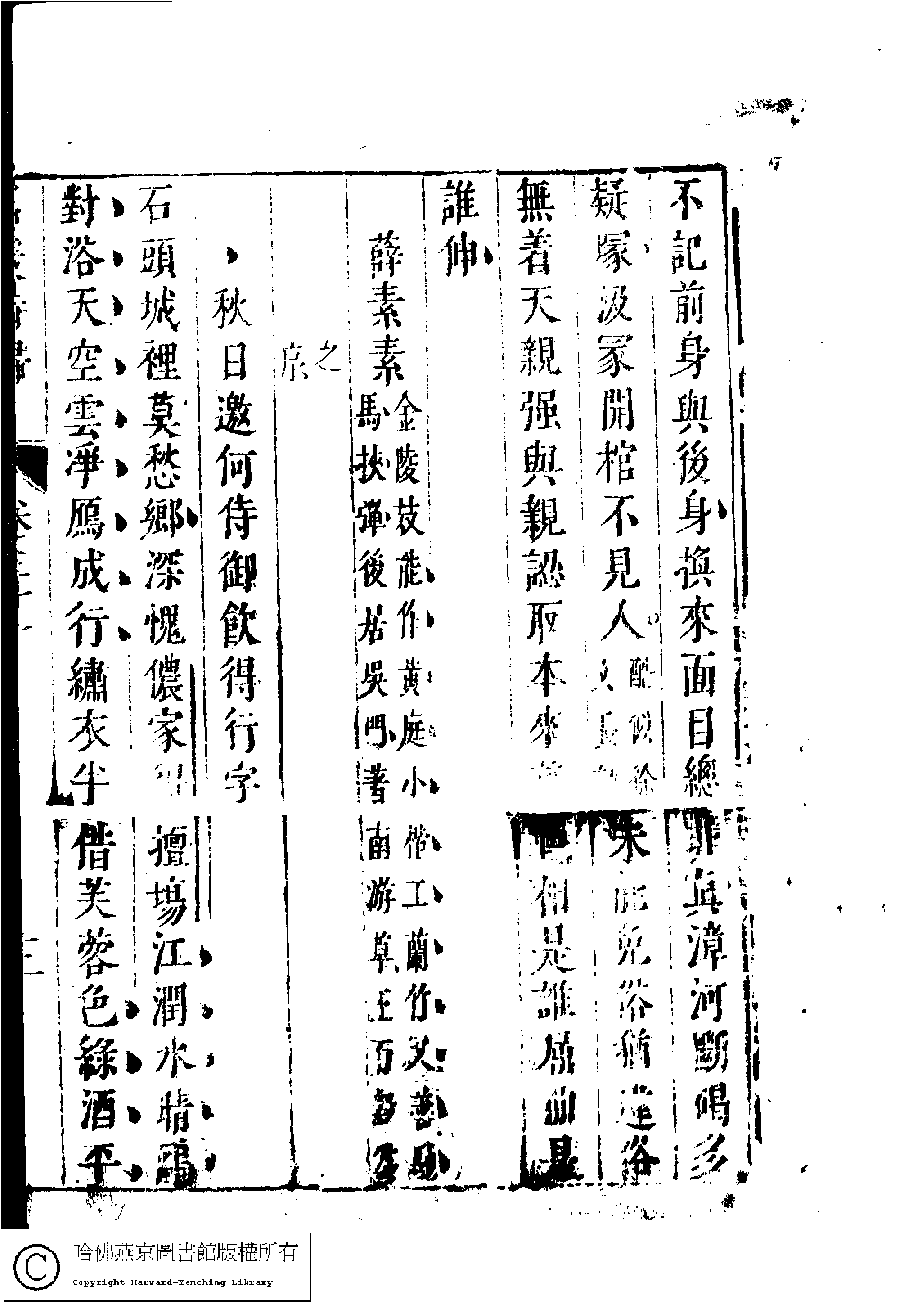 不記前身與後身換來面目總非真漳河斷碣多
疑塚汲冢開棺不見人
未能免俗猶達俗
無着天親强與親認取本來 相是誰 曲是
誰伸
薛素素
金陵技能作黄庭小楷工蘭竹又善
馬挾彈後居吳門著南游草王百
之
京
秋日邀何侍御飲得行字
石頭城裡莫愁鄉深愧儂家 擅場江潤水晴鷗
對浴天空雲凈鴈成行繡衣半借芙蓉色綠酒平
哈佛燕京圖書館版權所有
Copyright Harvard-Yenching Library